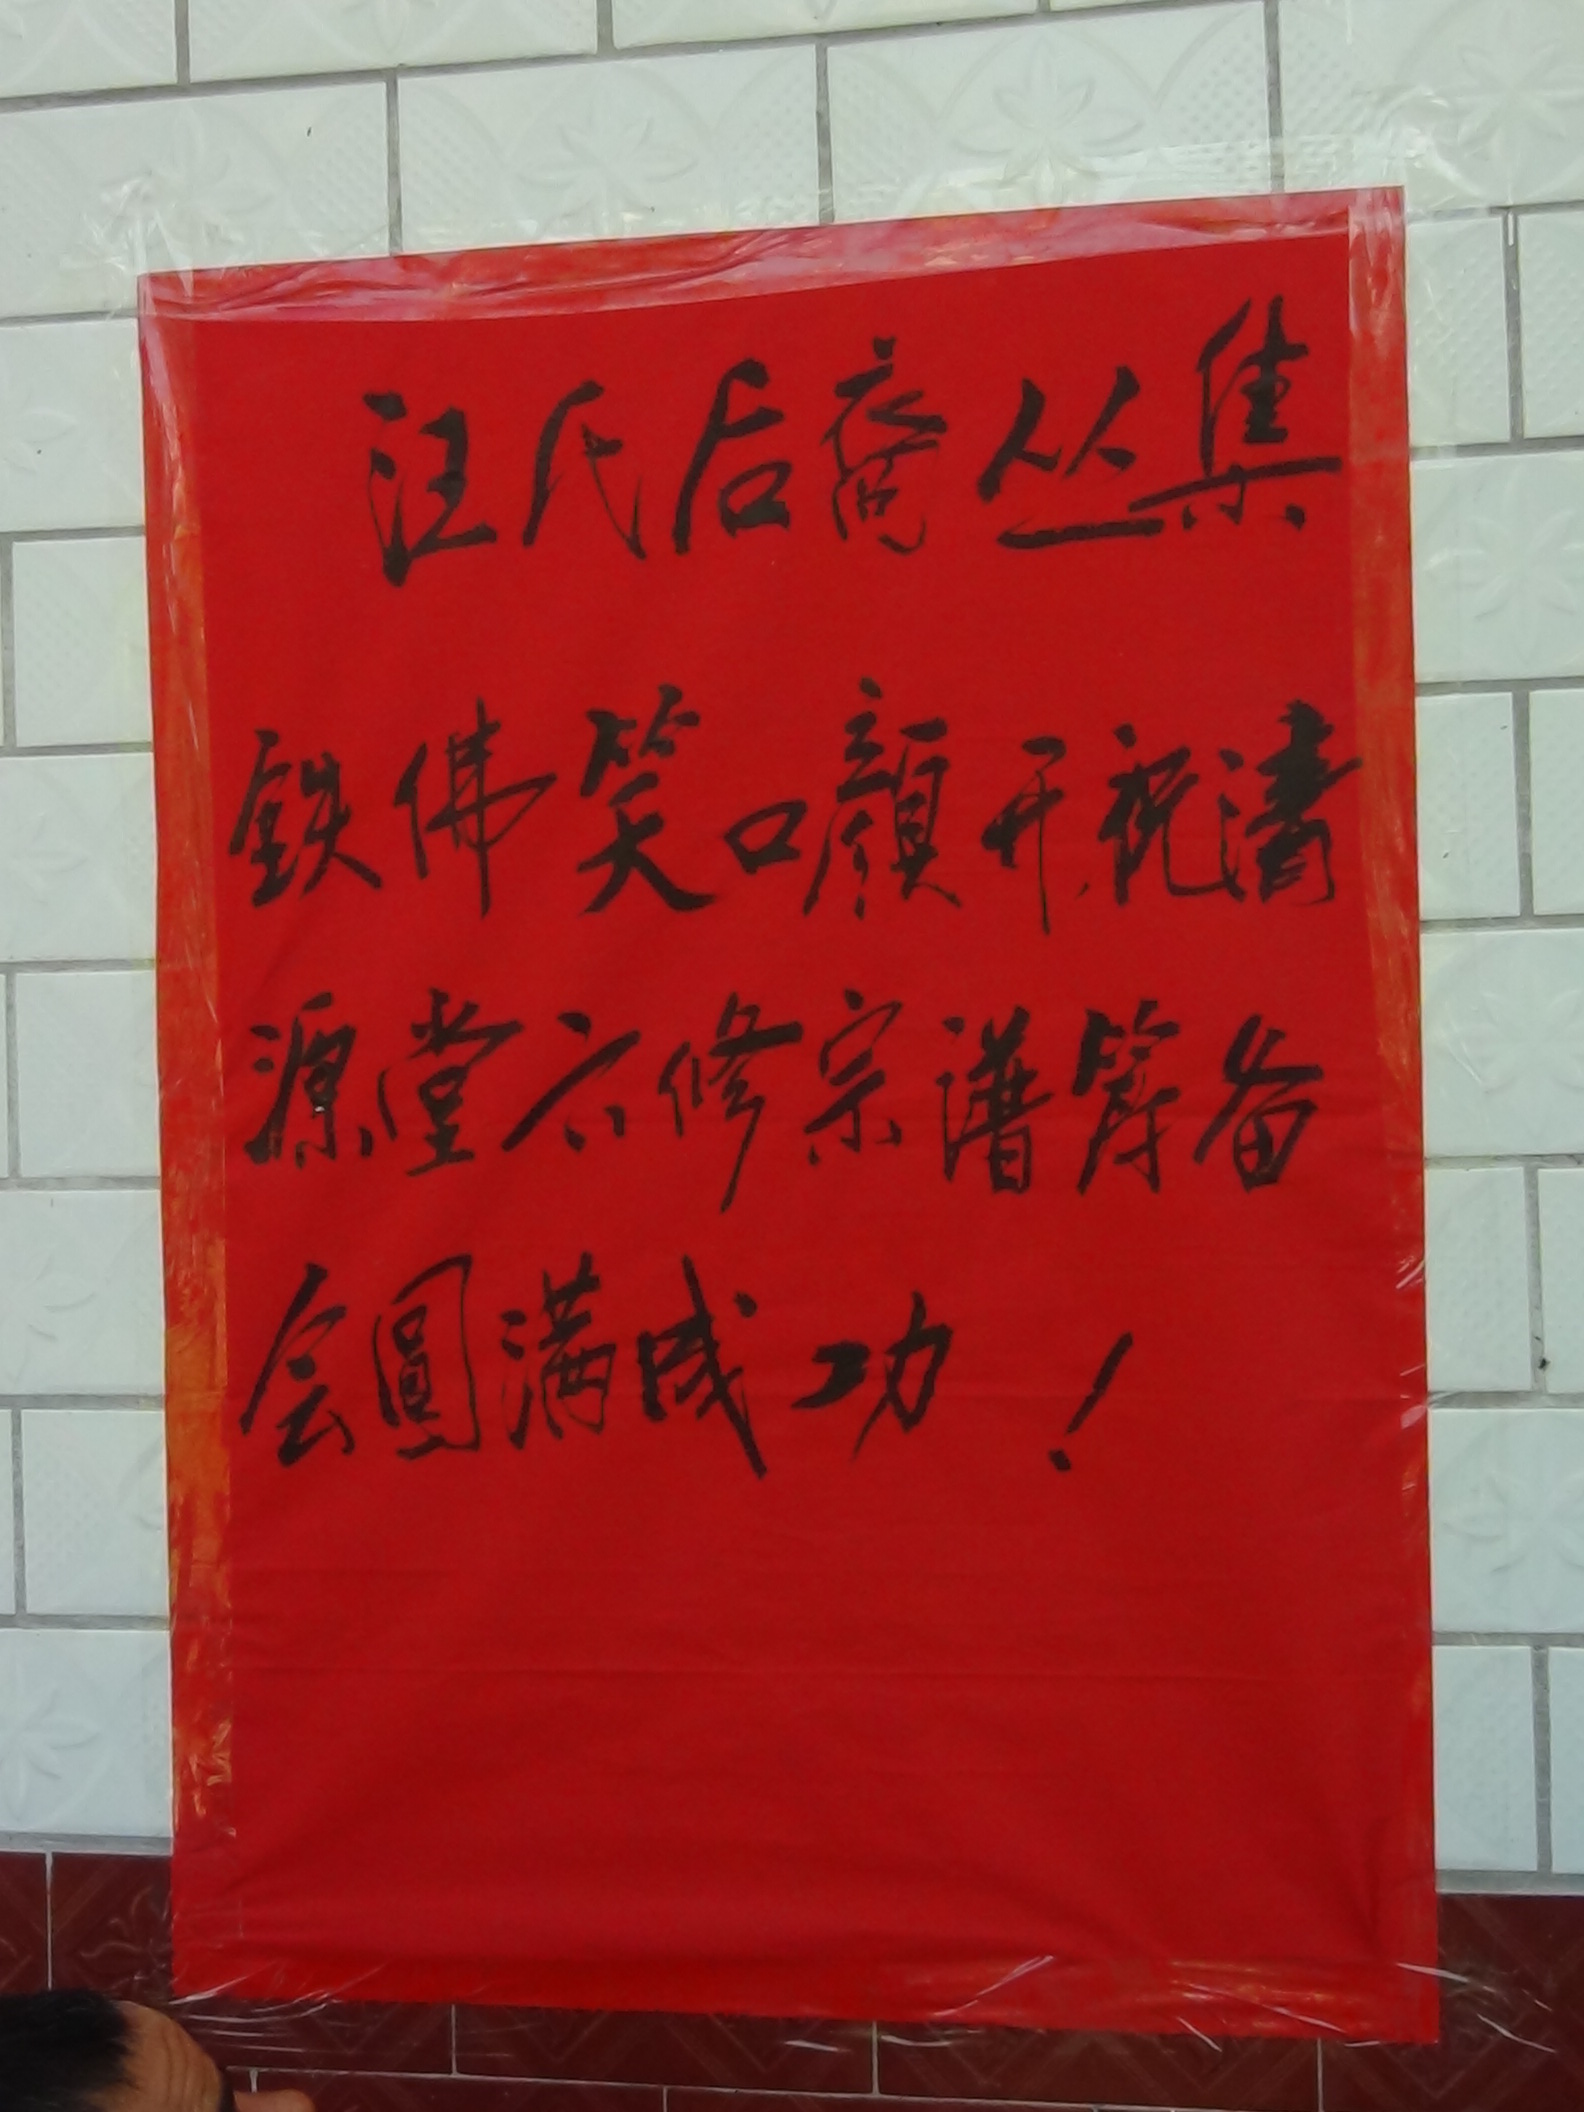 汪氏后裔丛集
鉄佛笑口顔开祝清
源堂六修宗谱筹备
会圓满成功！